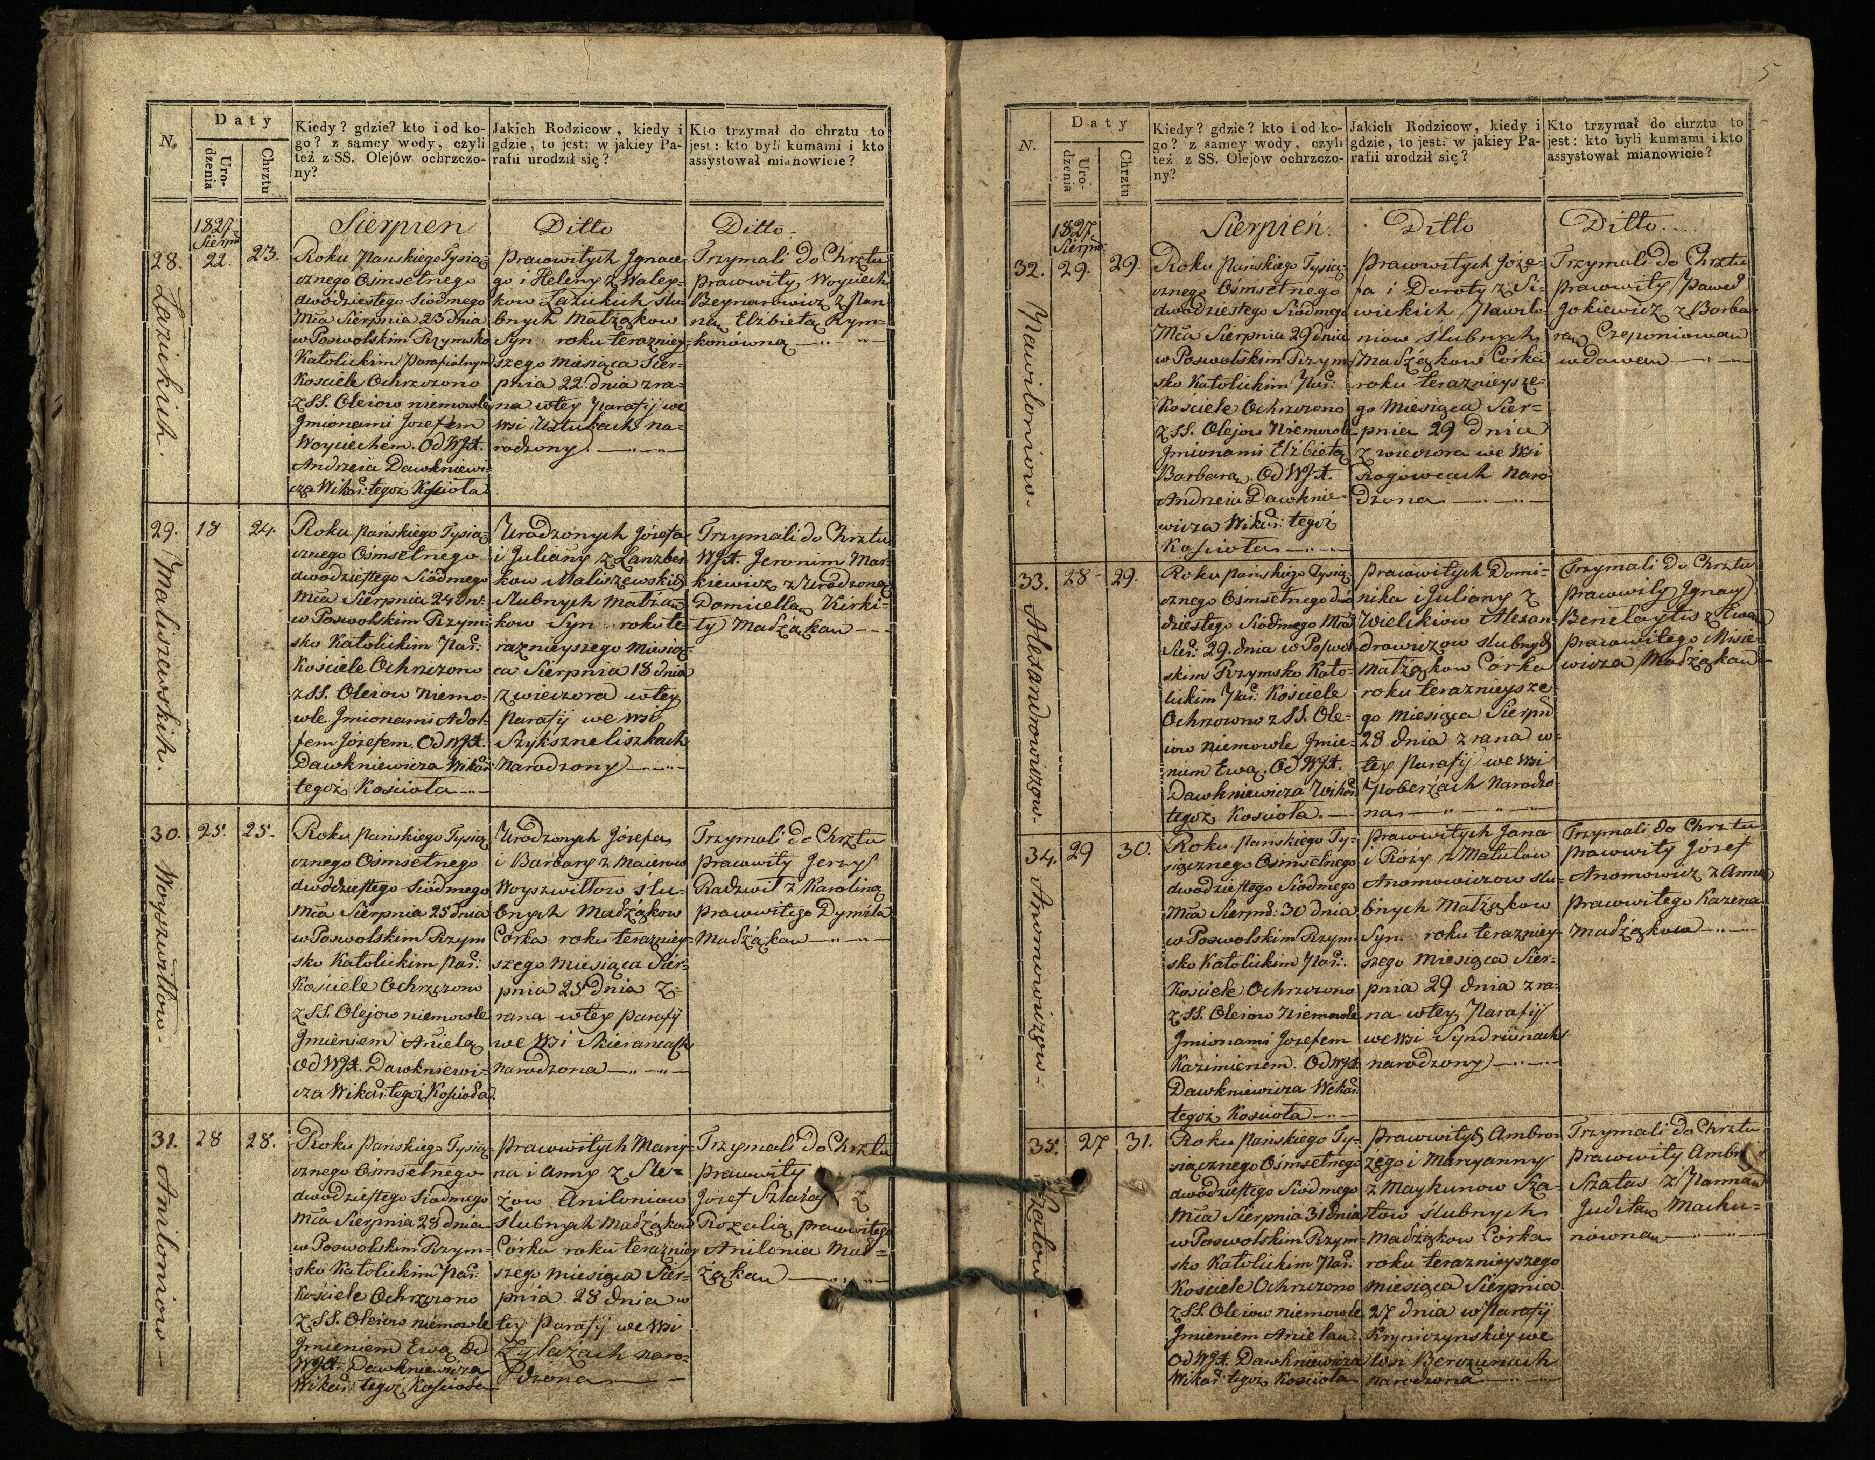 N.
Daty
Uro-
dzenia
Chrztu
Kiedy? gdzie? kto i od ko-
go? z samey wody, czyli
też z SS. Olejów ochrzczo-
ny?
Jakich Rodzicow, kiedy i
gdzie, to jest: w jakiey Pa-
rafii urodził się?
Kto trzymał do chrztu to
jest: kto byli kumami i kto
assystował mianowicie?
1827.
Sierpń
Sierpien
Ditto
Ditto
28.
Łazickich.
22.
23.
Roku Panskiego Tysią-
cznego Osmsetnego
dwódziestego Siodmego
Mca Sierpnia 23 dnia
w Poswolskim Rzymsko
Katolickim Parafialnym
Kosciele Ochrzczono
z SS. Oleiow niemowle
Jmionami Jozefem
Woyciechem. Od WJX.
Andrzeia Dawkniewi-
cza Wikar: tegoż Kościoła
Prawowitych Jgnace-
go i Heleny z
kow slu-
bnych Małżąkow
Syn roku teraźniey-
szego miesiąca Sier-
pnia 22 dnia zra-
na w tey Parafij we
wsi na-
rodzony.
Trzymali do Chrztu
Prawowity Woyciech
z Pan-
ną Elżbietą Rym-
konowną
29.
Maliszewskich.
18
24.
Roku Pańskiego Tysią-
cznego Ośmsetnego
dwodziestego Siodmego
Mca Sierpnia 24 dn:
w Poswolskim Rzym-
sko Katolickim Par:
Kosciele Ochrzczono
z SS. Oleiow Niemo-
wle Jmionami Adol-
fem Józefem. Od WJX.
Dawkniewicza Wikar:
tegoż Kościoła
Urodzonych Józefa
i Julianny z
kow Maliszewskich
slubnych Małżą-
kow Syn roku te-
raznieyszego Miesią-
ca Sierpnia 18 dnia
z wieczora w tey
Parafij we wsi
Szykszneliszkach
Narodzony
Trzymali do Chrztu
WJX. Jeronim Mar-
kiewicz z Urodzoną
Domicellą Kirki-
ty Małżąkąn
30.
Woyszwiłłow.
25.
25.
Roku Pańskiego Tysią-
cznego Ośmsetnego
dwódziestego Siódmego
Mca Sierpnia 25 dnia
w Poswolskim Rzym-
sko Katolickim Par:
Kosciele Ochrzczono
z SS. Olejow niemowle
Jmieniem Anielą
Od WJX. Dawkniewi-
cza Wikar: tegoż Kościoła
Urodzonych Józefa
i Barbary z
Woyszwiłłow slu-
bnych Małżąkow
Córka roku teraźniey-
szego miesiąca Sier-
pnia 25 dnia z
rana w tey Parafij
we Wsi
Narodzona
Trzymali do Chrztu
Prawowity Jerzy
Radzwił z Karoliną
Prawowitego Dymsza
Małżąkąn
31.
Aniloniow
28
28.
Roku Pańskiego Tysią-
cznego Ośmsetnego
dwodziestego Siodmego
Mca Sierpnia 28 dnia
w Poswolskim Rzym-
sko Katolickim Par:
Kościele Ochrzczono
z SS. Oleiow niemowle
Jmieniem Ewą Od
WJX. Dawkniewicza
Wikar: tegoż Kościoła
Prawowitych Marcy-
na i Anny z
Aniloniow
slubnych Małżąkow
Córka roku teraźniey-
szego miesiąca Sier-
pnia 28 dnia w
tey Parafij we wsi
Zylazach naro-
dzona
Trzymali do Chrztu
Prawowity
Jozef z
Rozalią Prawowitego
Anilonia Mał-
żąkąn
5
N.
Daty
Uro-
dzenia
Chrztu
Kiedy? gdzie? kto i od ko-
go? z samey wody, czyli
też z SS. Olejow ochrzczo-
ny?
Jakich Rodzicow, kiedy i
gdzie, to jest: w jakiey Pa-
rafii urodził się?
Kto trzymał do chrztu to
jest: kto byli kumami i kto
assystował mianowicie?
1827.
Sierpń:
Sierpień.
Ditto
Ditto.
32.
Pawiloniow.
29.
29.
Roku Pańskiego Tysią-
cznego Osmsetnego
dwodziestego Siodmego
Mca Sierpnia 29 dnia
w Poswolskim Rzym-
sko Katolickim Par:
Kościele Ochrzczono
z SS. Olejow Niemowle
Jmionami Elżbietą
Barbarą. Od WJX.
Andrzeia Dawknie-
wicza Wikar: tegoż
Kościoła
Prawowitych Joze-
fa i Doroty z Si-
wickich Pawilo-
niow slubnych
Małżąkow Corka
roku teraznieysze-
go Miesiąca Sier-
pnia 29 dnia
z wieczora we Wsi
Rogowcach Naro-
dzona
Trzymali do Chrztu
Prawowity Paweł
Gokiewicz z Barba-
rą Czeponiową
wdową
33.
Alexandrowiczow.
28
29.
Roku Pańskiego Tysią-
cznego Osmsetnego dwo-
dziestego Siodmego Mca
Sier: 29. dnia w Poswol-
skim Rzymsko Kato-
lickim Par: Kościele
Ochrzczono z SS. Ole-
iow niemowle Jmie-
niem Ewą. Od WJX.
Dawkniewicza Wikar:
tegoż Kościoła
Prawowitych Domi-
nika i Julianny z
Wielikiow Alexan-
drowiczow slubnych
Małżąkow Córka
roku teraznieysze-
go miesiąca Sierpń
28 dnia z rana w
tey Parafij we Wsi
Poberżach Narodzo-
na
Trzymali do Chrztu
Prawowity Jgnacy
z Ewą
Prawowitego Misie-
wicza Małżąkąn
34.
Anomowiczow
29
30.
Roku Pańskiego Ty-
siącznego Osmsetnego
dwodziestego Siodmego
Mca Sierpń: 30 dnia
w Poswolskim Rzym-
sko Katolickim Par:
Kościele Ochrzczono
z SS. Oleiow Niemowle
Jmionami Jozefem
Kazimierzem. Od WJX.
Dawkniewicza Wikar:
tegoż Kościoła
Prawowitych Jana
i Róży z Matulow
Anomowiczow slu-
bnych Małżąkow
Syn roku teraźniey-
szego miesiąca Sier-
pnia 29 dnia zra-
na w tey Parafij
we wsi Syndriunach
narodzony
Trzymali do Chrztu
Prawowity Józef
Anomowicz z Anną
Prawowitego Kazena
Małżąkową
35.
Szatow
27
31.
Roku Pańskiego Ty-
siącznego Ośmsetnego
dwodziestego Siodmego
Mca Sierpnia 31 dnia
w Poswolskim Rzym-
sko Katolickim Par:
Kościele Ochrzczono
z SS. Oleiow niemowle
Jmieniem Anielą
Od WJX. Dawkniewicza
Wikar: tegoż Kościoła
Prawowitych Ambro-
zego i Maryanny
z Maykunow Sza-
tow slubnych
Małżąkow Córka
roku teraznieyszego
miesiąca Sierpnia
27 dnia w Parafij
Kryniczynskiey we
wsi Berczunach
narodzona
Trzymali do Chrztu
Prawowity
Szataw z Panną
Juditą Machu-
nowną